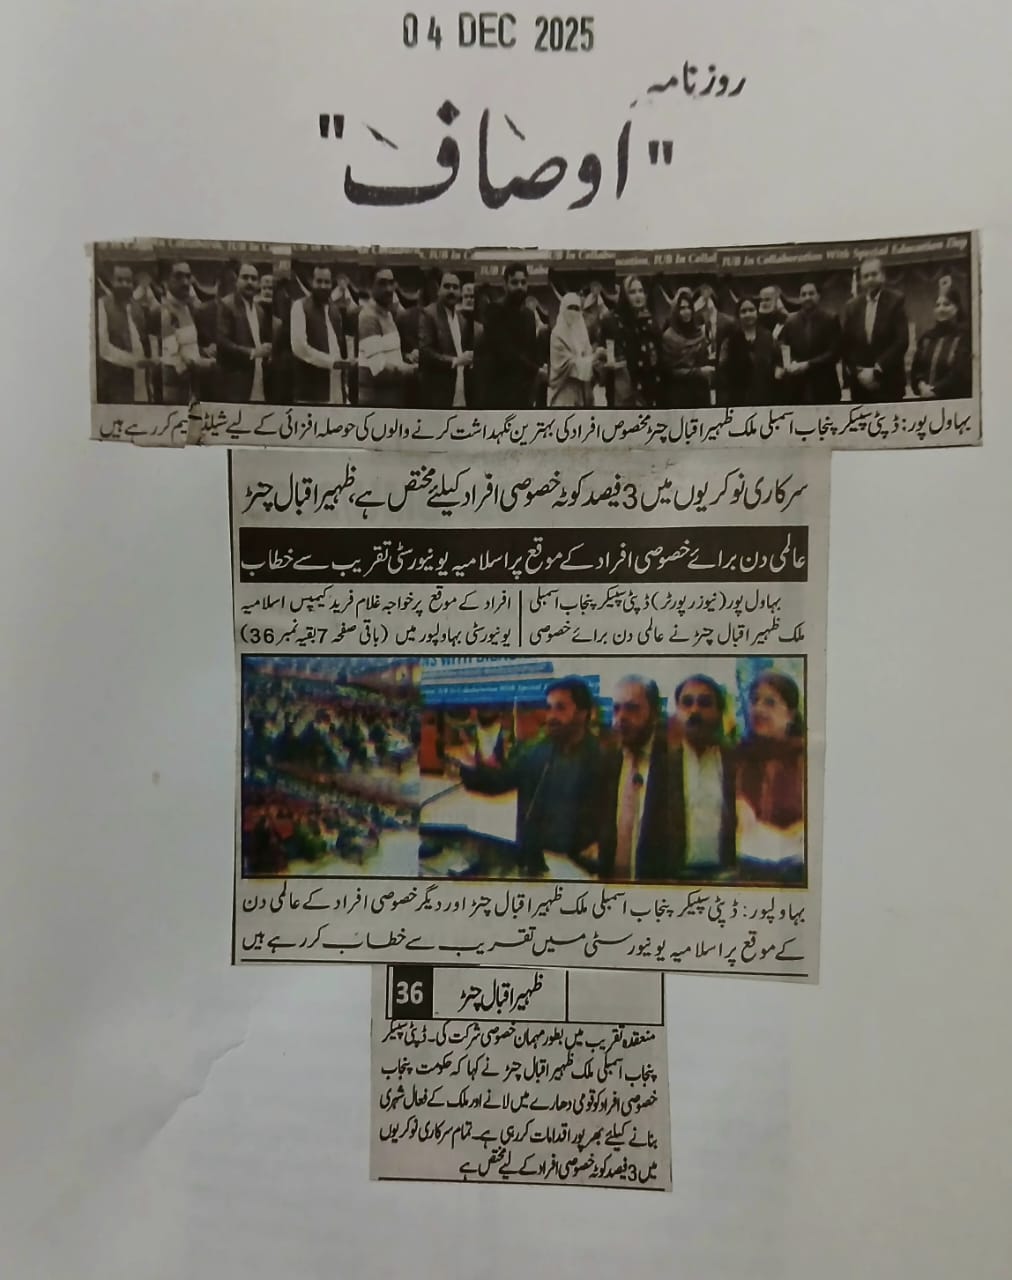 04 DEC 2025
روزنامہ
"اوصاف"
IUB In Collaboration With Special Education Dep
بہاول پور: ڈپٹی سپیکر پنجاب اسمبلی ملک ظہیر اقبال چنڑ مخصوص افراد کی بہترین نگہداشت کرنے والوں کی حوصلہ افزائی کے لیے شیلڈ کر رہے ہیں
سرکاری نوکریوں میں 3 فیصد کوٹہ خصوصی افراد کیلئے مختص ہے، ظہیر اقبال چنڑ
عالمی دن برائے خصوصی افراد کے موقع پر اسلامیہ یونیورسٹی تقریب سے خطاب
بہاول پور (نیوز رپورٹر) ڈپٹی سپیکر پنجاب اسمبلی
ملک ظہیر اقبال چنڑ نے عالمی دن برائے خصوصی
افراد کے موقع پر خواجہ غلام فرید کیمپس اسلامیہ
یونیورسٹی بہاولپور میں (باقی صفحہ 7 بقیہ نمبر 36)
IUB In Collaboration With Special
بہاولپور: ڈپٹی سپیکر پنجاب اسمبلی ملک ظہیر اقبال چنڑ اور دیگر خصوصی افراد کے عالمی دن
کے موقع پر اسلامیہ یونیورسٹی میں تقریب سے خطاب کر رہے ہیں
36 ظہیر اقبال چنڑ
منعقدہ تقریب میں بطور مہمان خصوصی شرکت کی۔ ڈپٹی سپیکر
پنجاب اسمبلی ملک ظہیر اقبال چنڑ نے کہا کہ حکومت پنجاب
خصوصی افراد کو قومی دھارے میں لانے اور ملک کے فعال شہری
بنانے کیلئے بھرپور اقدامات کر رہی ہے۔ تمام سرکاری نوکریوں
میں 3 فیصد کوٹہ خصوصی افراد کے لیے مختص ہے